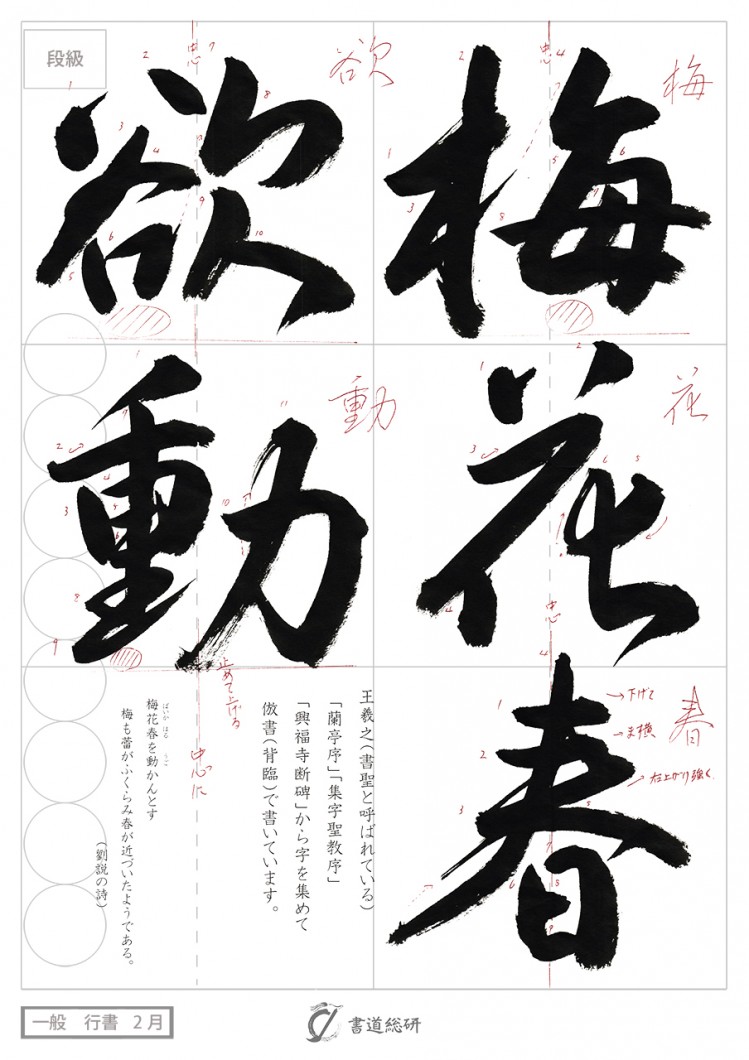 段級
梅花春
欲動
梅
花
春
欲
動
中心
中心
中心
下げて
ま横
右上がり強く
止めて上げる
中心に
王羲之(書聖と呼ばれている)
「蘭亭序」「集字聖教序」
「興福寺断碑」から字を集めて
倣書(背臨)で書いています。
ばいか はる うご
梅花春を動かんとす
梅も蕾がふくらみ春が近づいたようである。
(劉説の詩)
一般 行書 2月
書道総研